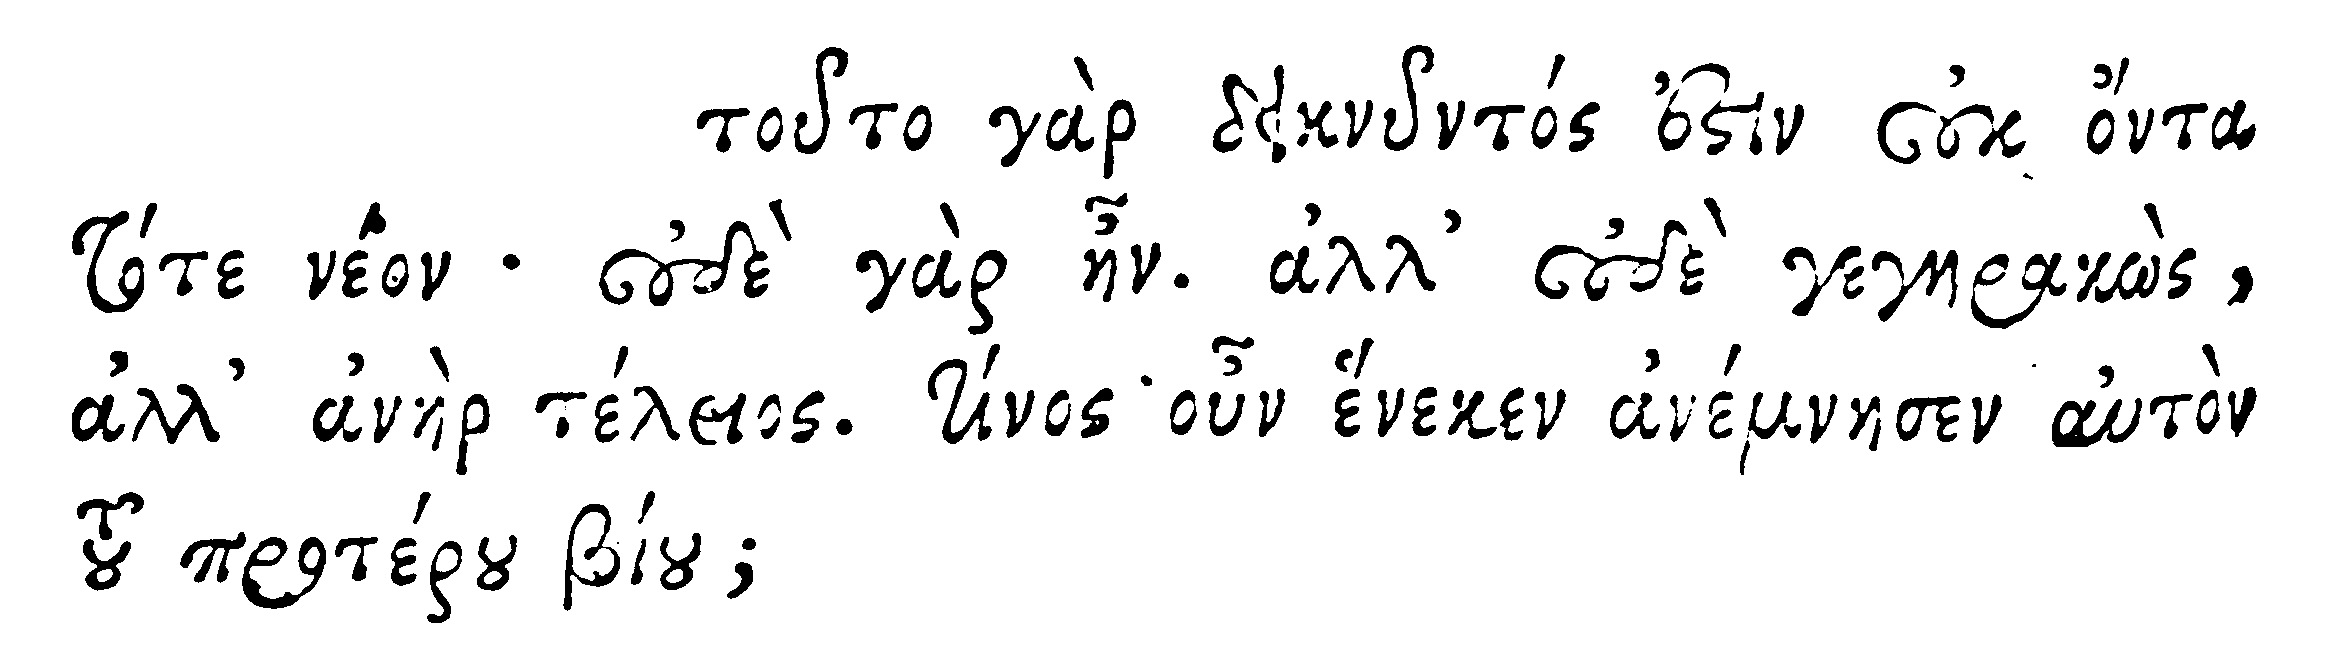 τοῦτο γὰρ δεικνῦντός ἐστιν οὐκ ὄντα
τότε νέον · οὐδὲ γὰρ ἦν. ἀλλ' οὐδὲ γεγηρακὼς,
ἀλλ' ἀνὴρ τέλειος. τίνος οὖν ἕνεκεν ἀνέμνησεν αὐτὸν
τοῦ προτέρου βίου;